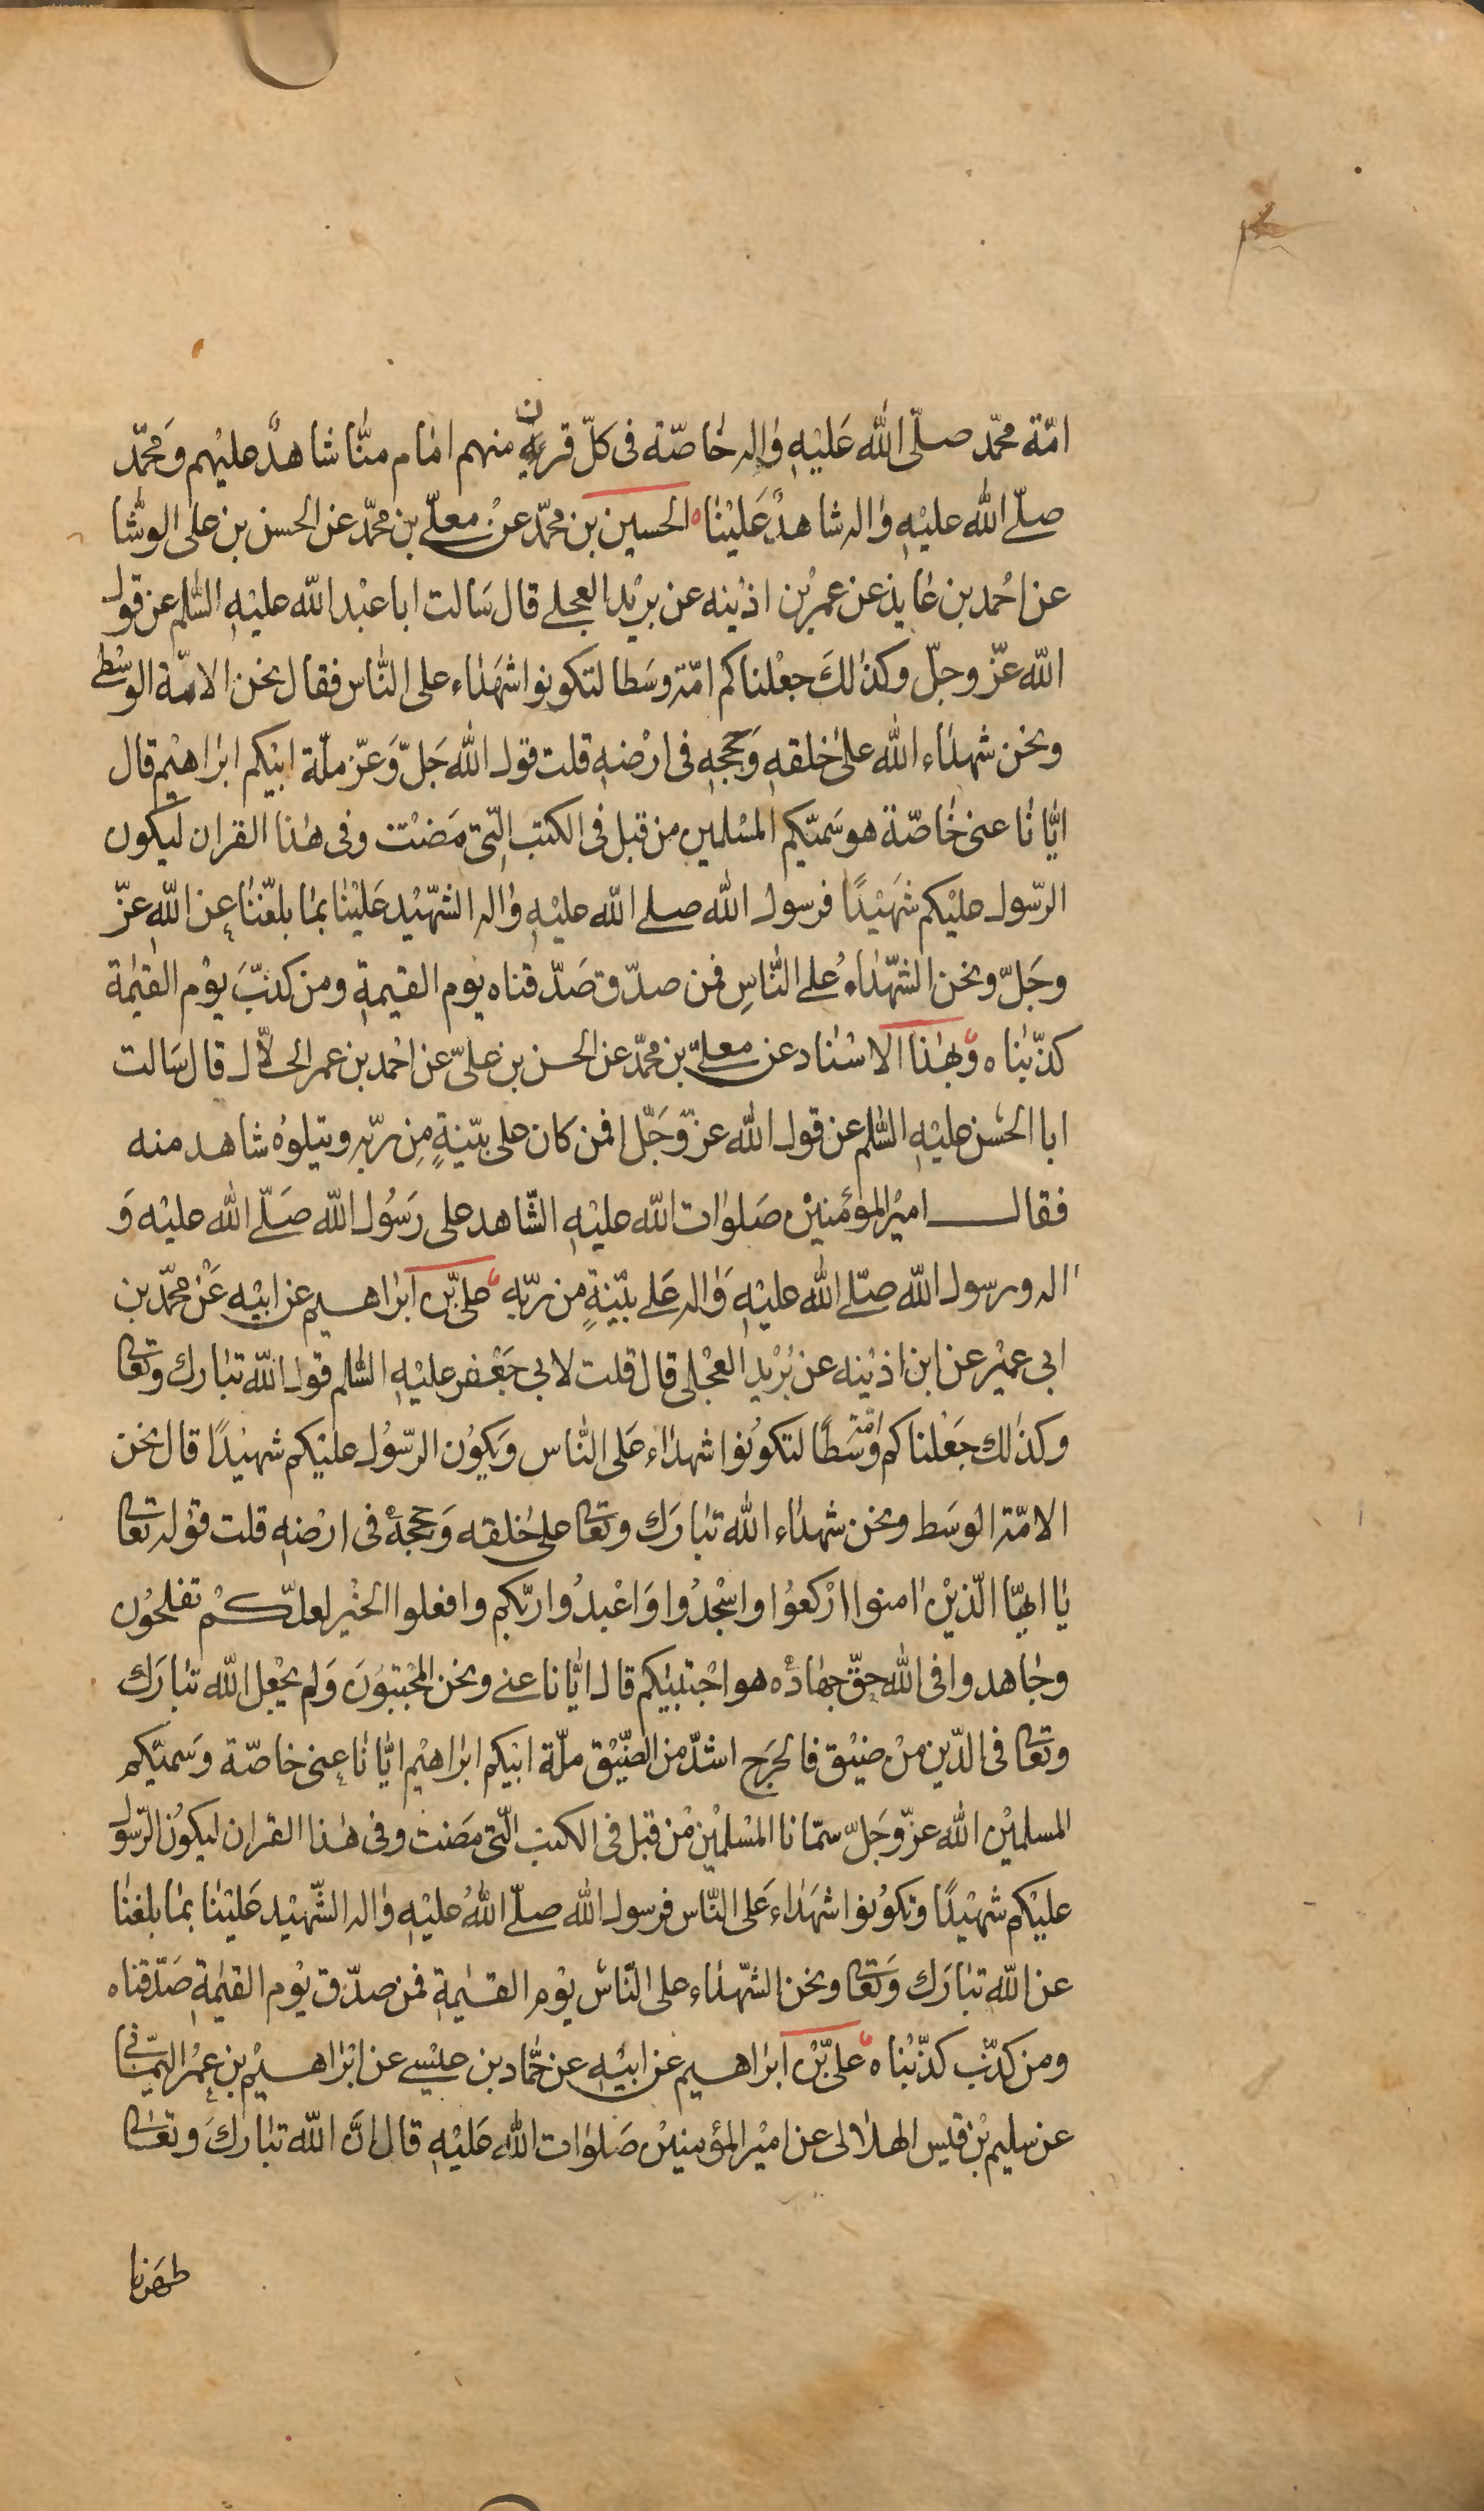 امّة محمّد صلّى الله عَليْهِ وٰاله خٰاصّة فى كلّ قرن منهم امٰام منّٰا شاهدٌ عليهم وَمحمّد
صلّے الله عليْهِ وٰاله شاهدٌ عَليْنٰا الحسين بن محمّد عنْ معلّے بن محمّد عن الحسن بن على الوشّا
عن احْمد بن عٰايذ عن عمر بْن اذيْنه عن بريْد العجلے قال سَالت ابا عبْد الله عليْهِ السّٰلم عن قول
الله عزّ وجلّ وكذٰلكَ جعْلناكم امّة وسَطا لتكونوا شهَدٰاء على النّٰاس فقال نحن الامّة الوسْطى
ونحن شهدٰاء الله علىٰ خلقهِ وَحججهِ فى ارْضهِ قلت قول الله جَلّ وَعزّ ملّة ابيْكم ابرٰاهيْم قال
ايّٰانٰا عنى خٰاصّة هو سَمّيكم المسْلمين من قبل فى الكتب الّتى مَضتْ وفى هٰذا القرٰان ليكون
الرّسول عليْكم شَهيْدًا فرسول الله صلے الله عليْهِ وٰاله الشّهيْد عَليْنٰا بمٰا بلغّنٰا عن الله عزّ
وجَلّ ونحن الشّهدٰاءُ على النّٰاسِ فمن صدّق صَدّقناه يوم القيمةِ ومن كذبّ يوْم القيٰمة
كذّبْنٰاه وبهٰذا الاسْنٰاد عن معلّے بن محمّد عن الحسن بن علىّ عن احْمد بن عمر الحلّال قال سَالت
ابا الحسَن عليْهِ السّٰلم عن قول الله عزّ وَجَلّ افمن كان على بيّنةٍ مِن ربّه ويتلوهُ شاهد منه
فقال اميْر المؤمنيْن صَلوٰات الله عليْهِ الشّاهد على رَسُول الله صَلّے الله عليْه وَ
اله ورسول الله صلّے الله عليْهِ وَاله عَلے بيّنةٍ من ربّهِ على بْن ابرٰاهيم عن ابيْهِ عَن محمّد بن
ابى عميْر عن ابن اذيْنه عن بُريْد العجْلى قال قلت لابى جَعْفر عليْهِ السّٰلم قول الله تبٰارك وتعٰا
وكذٰلك جَعْلناكم امّة وَسَطًا لتكوْنوا شهدٰاء عَلى النّٰاس وَيكوُن الرّسُول عليْكم شهيْدًا قال نحن
الامّة الوسَط ونحن شهدٰاء الله تبٰارَك وتعٰا علىٰ خلقه وَحججهُ فى ارْضهِ قلت قوْله تعٰا
يٰا ايّهٰا الّذيْن اٰمنوا ارْكعوُا واسْجدُوا وَاعْبدُوا ربّكم وافعلوا الخيْر لعلّكمْ تفلحوُن
وجٰاهدوا فى الله حقّ جهٰادهِ هو اجْتبيٰكم قال ايّٰانا عنے ونحن المجْتبوُنَ وَلم يجْعل الله تبٰارَك
وتعٰا فى الدّين منْ ضيْق فالحَرج اشدّ من الضّيْق ملّة ابيْكم ابرٰاهيْم ايّٰانٰا عنى خاصّة وَسَميّكم
المسلميْن الله عزّ وجَلّ سمّانا المسْلميْن منْ قبل فى الكتب الّتى مَضتْ وفى هٰذا القرٰان ليكوُن الرّسول
عليْكم شهيْدًا وتكوُنوا شهَدٰاء عَلى النّٰاس فرسول الله صلّے اللهُ عليْهِ وٰاله الشّهيْد عَليْنٰا بمٰا بلغنٰا
عن الله تبٰارَك وَتعٰا ونحن الشّهدٰاء على النّاس يوْم القيٰمةِ فمن صدّق يوْم القيٰمةِ صَدّقناه
ومن كذّب كذّبْنٰاه على بْن ابرٰاهيم عن ابيْهِ عن حمّٰاد بن عيْسے عن ابْرٰاهيْم بن عمْر اليمٰانى
عن سليم بْن قيس الهلٰالى عن اميْر المؤمنيْن صَلوٰات الله عَليْهِ قال انَّ الله تبٰاركَ وتعٰا
طهّرنا